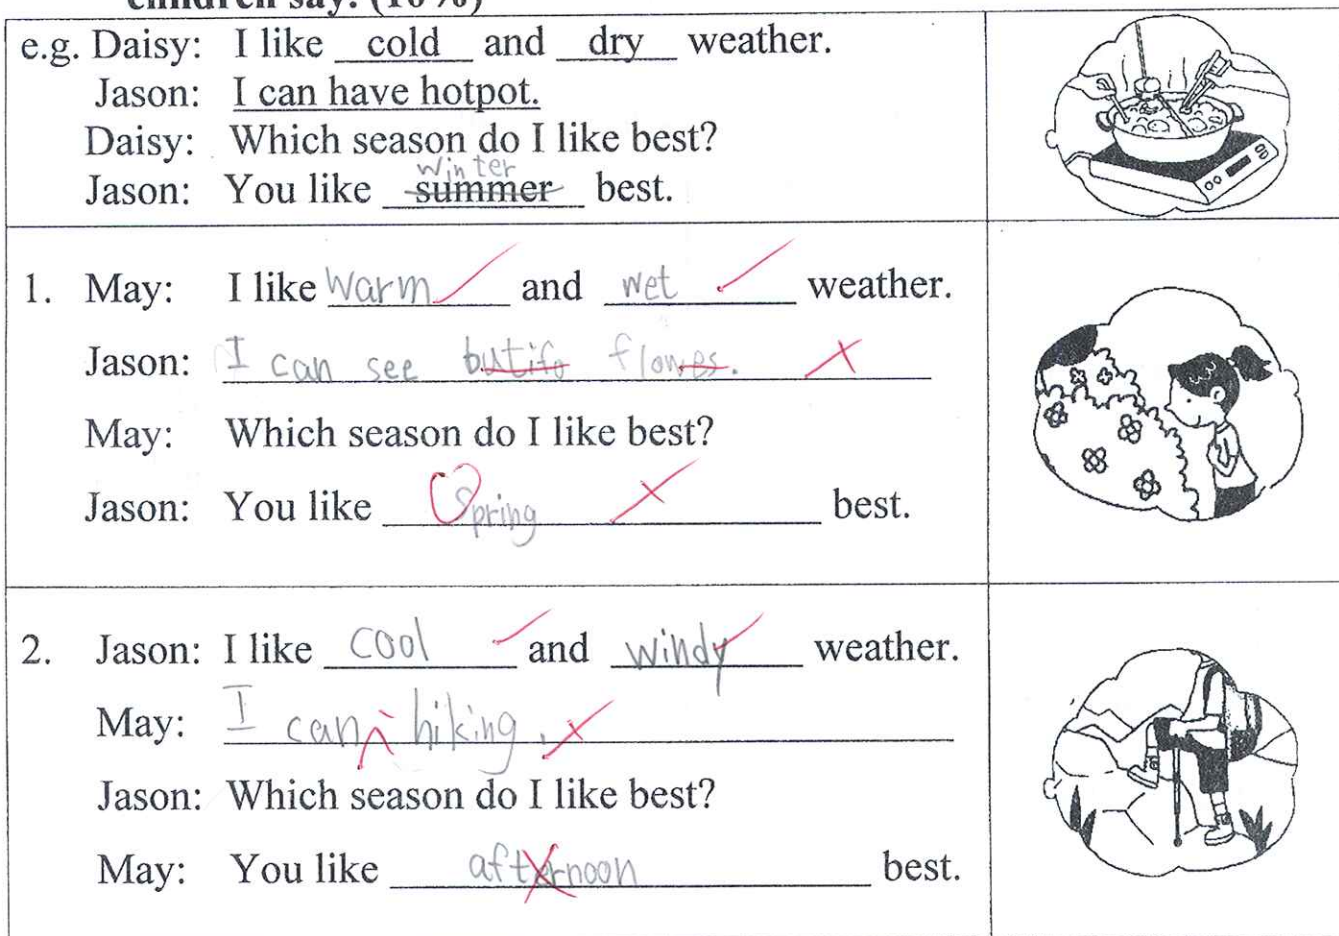 children say. (10%)
e.g. Daisy: I like cold and dry weather.
Jason: I can have hotpot.
Daisy: Which season do I like best?
winter
Jason: You like summer best.
1. May: I like warm and wet weather.
Jason: I can see butifo flowes.
May: Which season do I like best?
Jason: You like spring best.
2. Jason: I like cool and windy weather.
May: I can hiking.
Jason: Which season do I like best?
May: You like afternoon best.